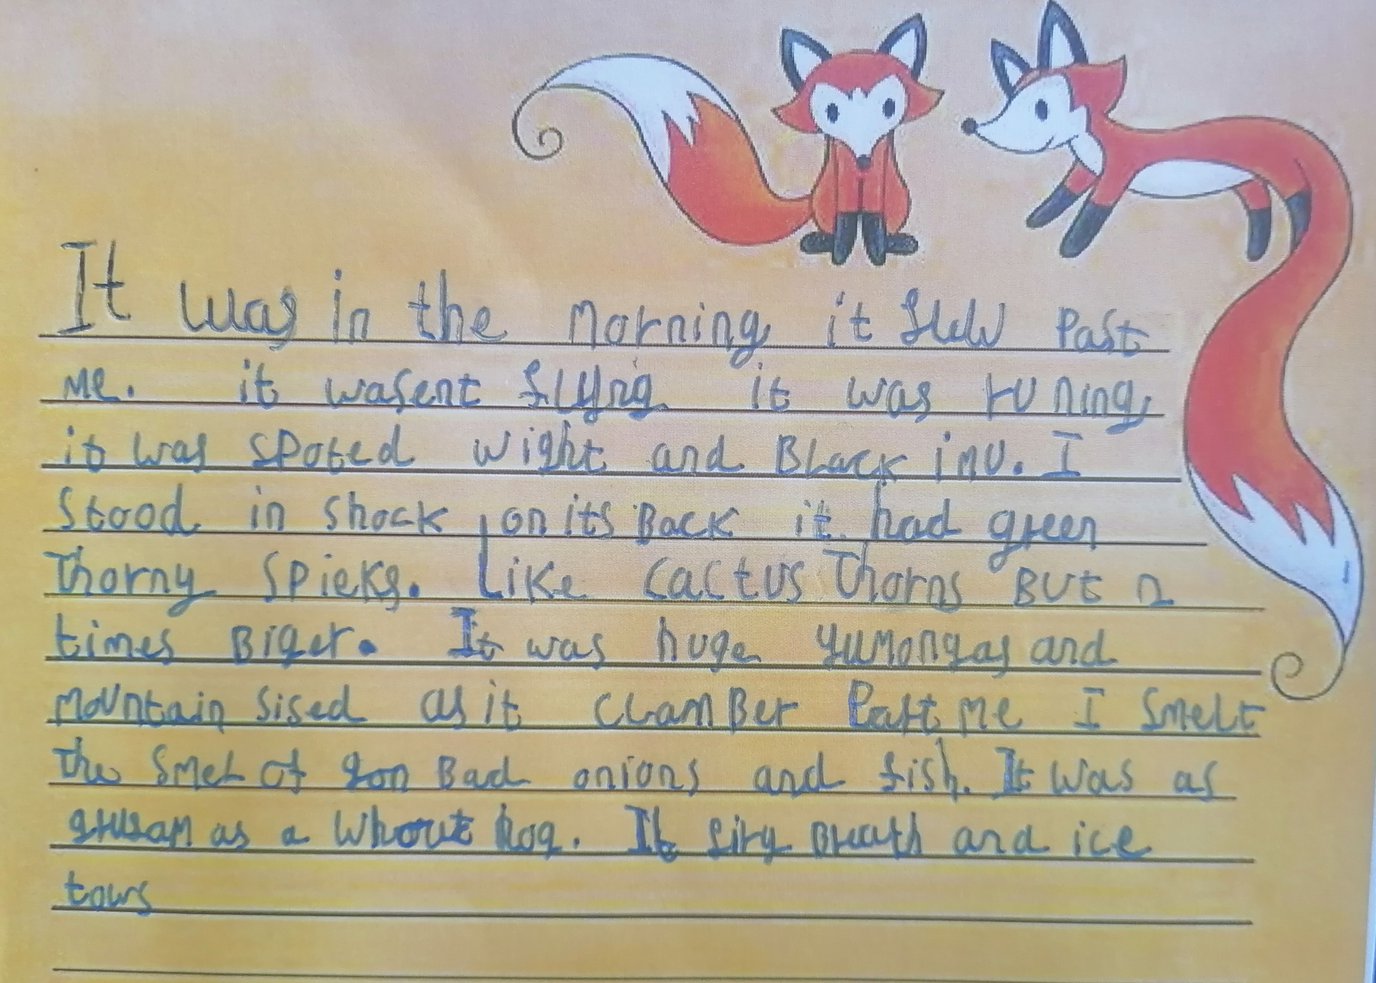 It was in the morning it flew past
me. it wasent flyng it was runing
it was spoted wight and Black inu. I
stood in shock on its Back it had green
thorny spieks. Like cactus thorns But 2
times Biger. It was huge yumongas and
mountain sised as it clamBer Past me I smelt
the smel of gon Bad onions and fish. It was as
grusam as a whout hog. It firy Breath and ice
tows